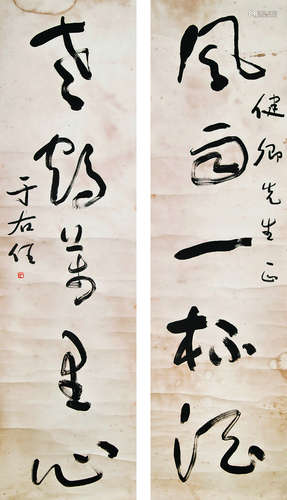 健卿先生正
風雨一杯酒
老鶴萬里心
于右任